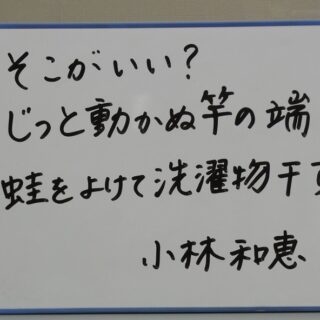 そこがいい？
じっと動かぬ竿の端
蛙をよけて洗濯物干す
小林和恵